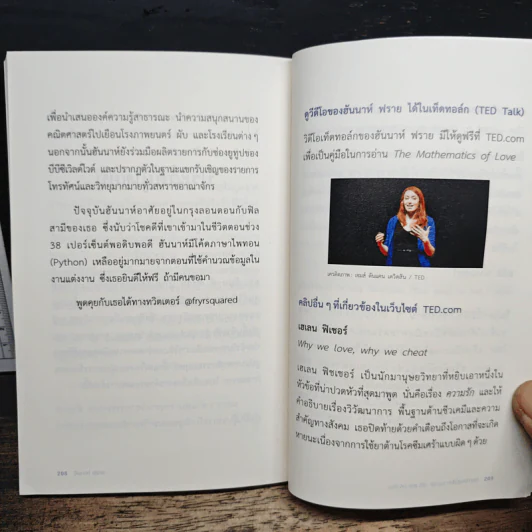 เพื่อนำเสนอองค์ความรู้สาธารณะ นำความสนุกสนานของ
คณิตศาสตร์ไปเยือนโรงภาพยนตร์ ผับ และโรงเรียนต่าง ๆ
นอกจากนั้นฮันนาห์ยังร่วมมือผลิตรายการกับช่องยูทูปของ
บีบีซีเวิลด์ไวด์ และปรากฏตัวในฐานะแขกรับเชิญของรายการ
โทรทัศน์และวิทยุมากมายทั่วสหราชอาณาจักร
ปัจจุบันฮันนาห์อาศัยอยู่ในกรุงลอนดอนกับฟิล
สามีของเธอ ซึ่งนับว่าโชคดีที่เขาเข้ามาในชีวิตตอนช่วง
38 เปอร์เซ็นต์พอดิบพอดี ฮันนาห์มีโค้ดภาษาไพทอน
(Python) เหลืออยู่มากมายจากตอนที่ใช้คำนวณข้อมูลใน
งานแต่งงาน ซึ่งเธอยินดีให้ฟรี ถ้ามีคนขอมา
พูดคุยกับเธอได้ทางทวิตเตอร์ @fryrsquared
ดูวีดีโอของฮันนาห์ ฟราย ได้ในเท็ดทอล์ก (TED Talk)
วีดีโอเท็ดทอล์กของฮันนาห์ ฟราย มีให้ดูฟรีที่ TED.com
เพื่อเป็นคู่มือในการอ่าน The Mathematics of Love
/ TED
คลิปอื่น ๆ ที่เกี่ยวข้องในเว็บไซต์ TED.com
เฮเลน ฟิเชอร์
Why we love, why we cheat
เฮเลน ฟิชเชอร์ เป็นนักมานุษยวิทยาที่หยิบเอาหนึ่งใน
หัวข้อที่น่าปวดหัวที่สุดมาพูด นั่นคือเรื่อง ความรัก และให้
คำอธิบายเรื่องวิวัฒนาการ พื้นฐานด้านชีวเคมีและความ
สำคัญทางสังคม เธอปิดท้ายด้วยคำเตือนถึงโอกาสที่จะเกิด
หายนะเนื่องจากการใช้ยาต้านโรคซึมเศร้าแบบผิด ๆ ด้วย